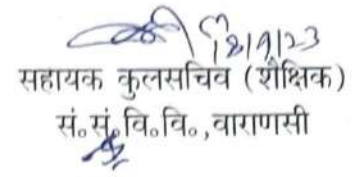 18/9/23
सहायक कुलसचिव (शैक्षिक)
सं॰सं॰वि॰वि॰,वाराणसी